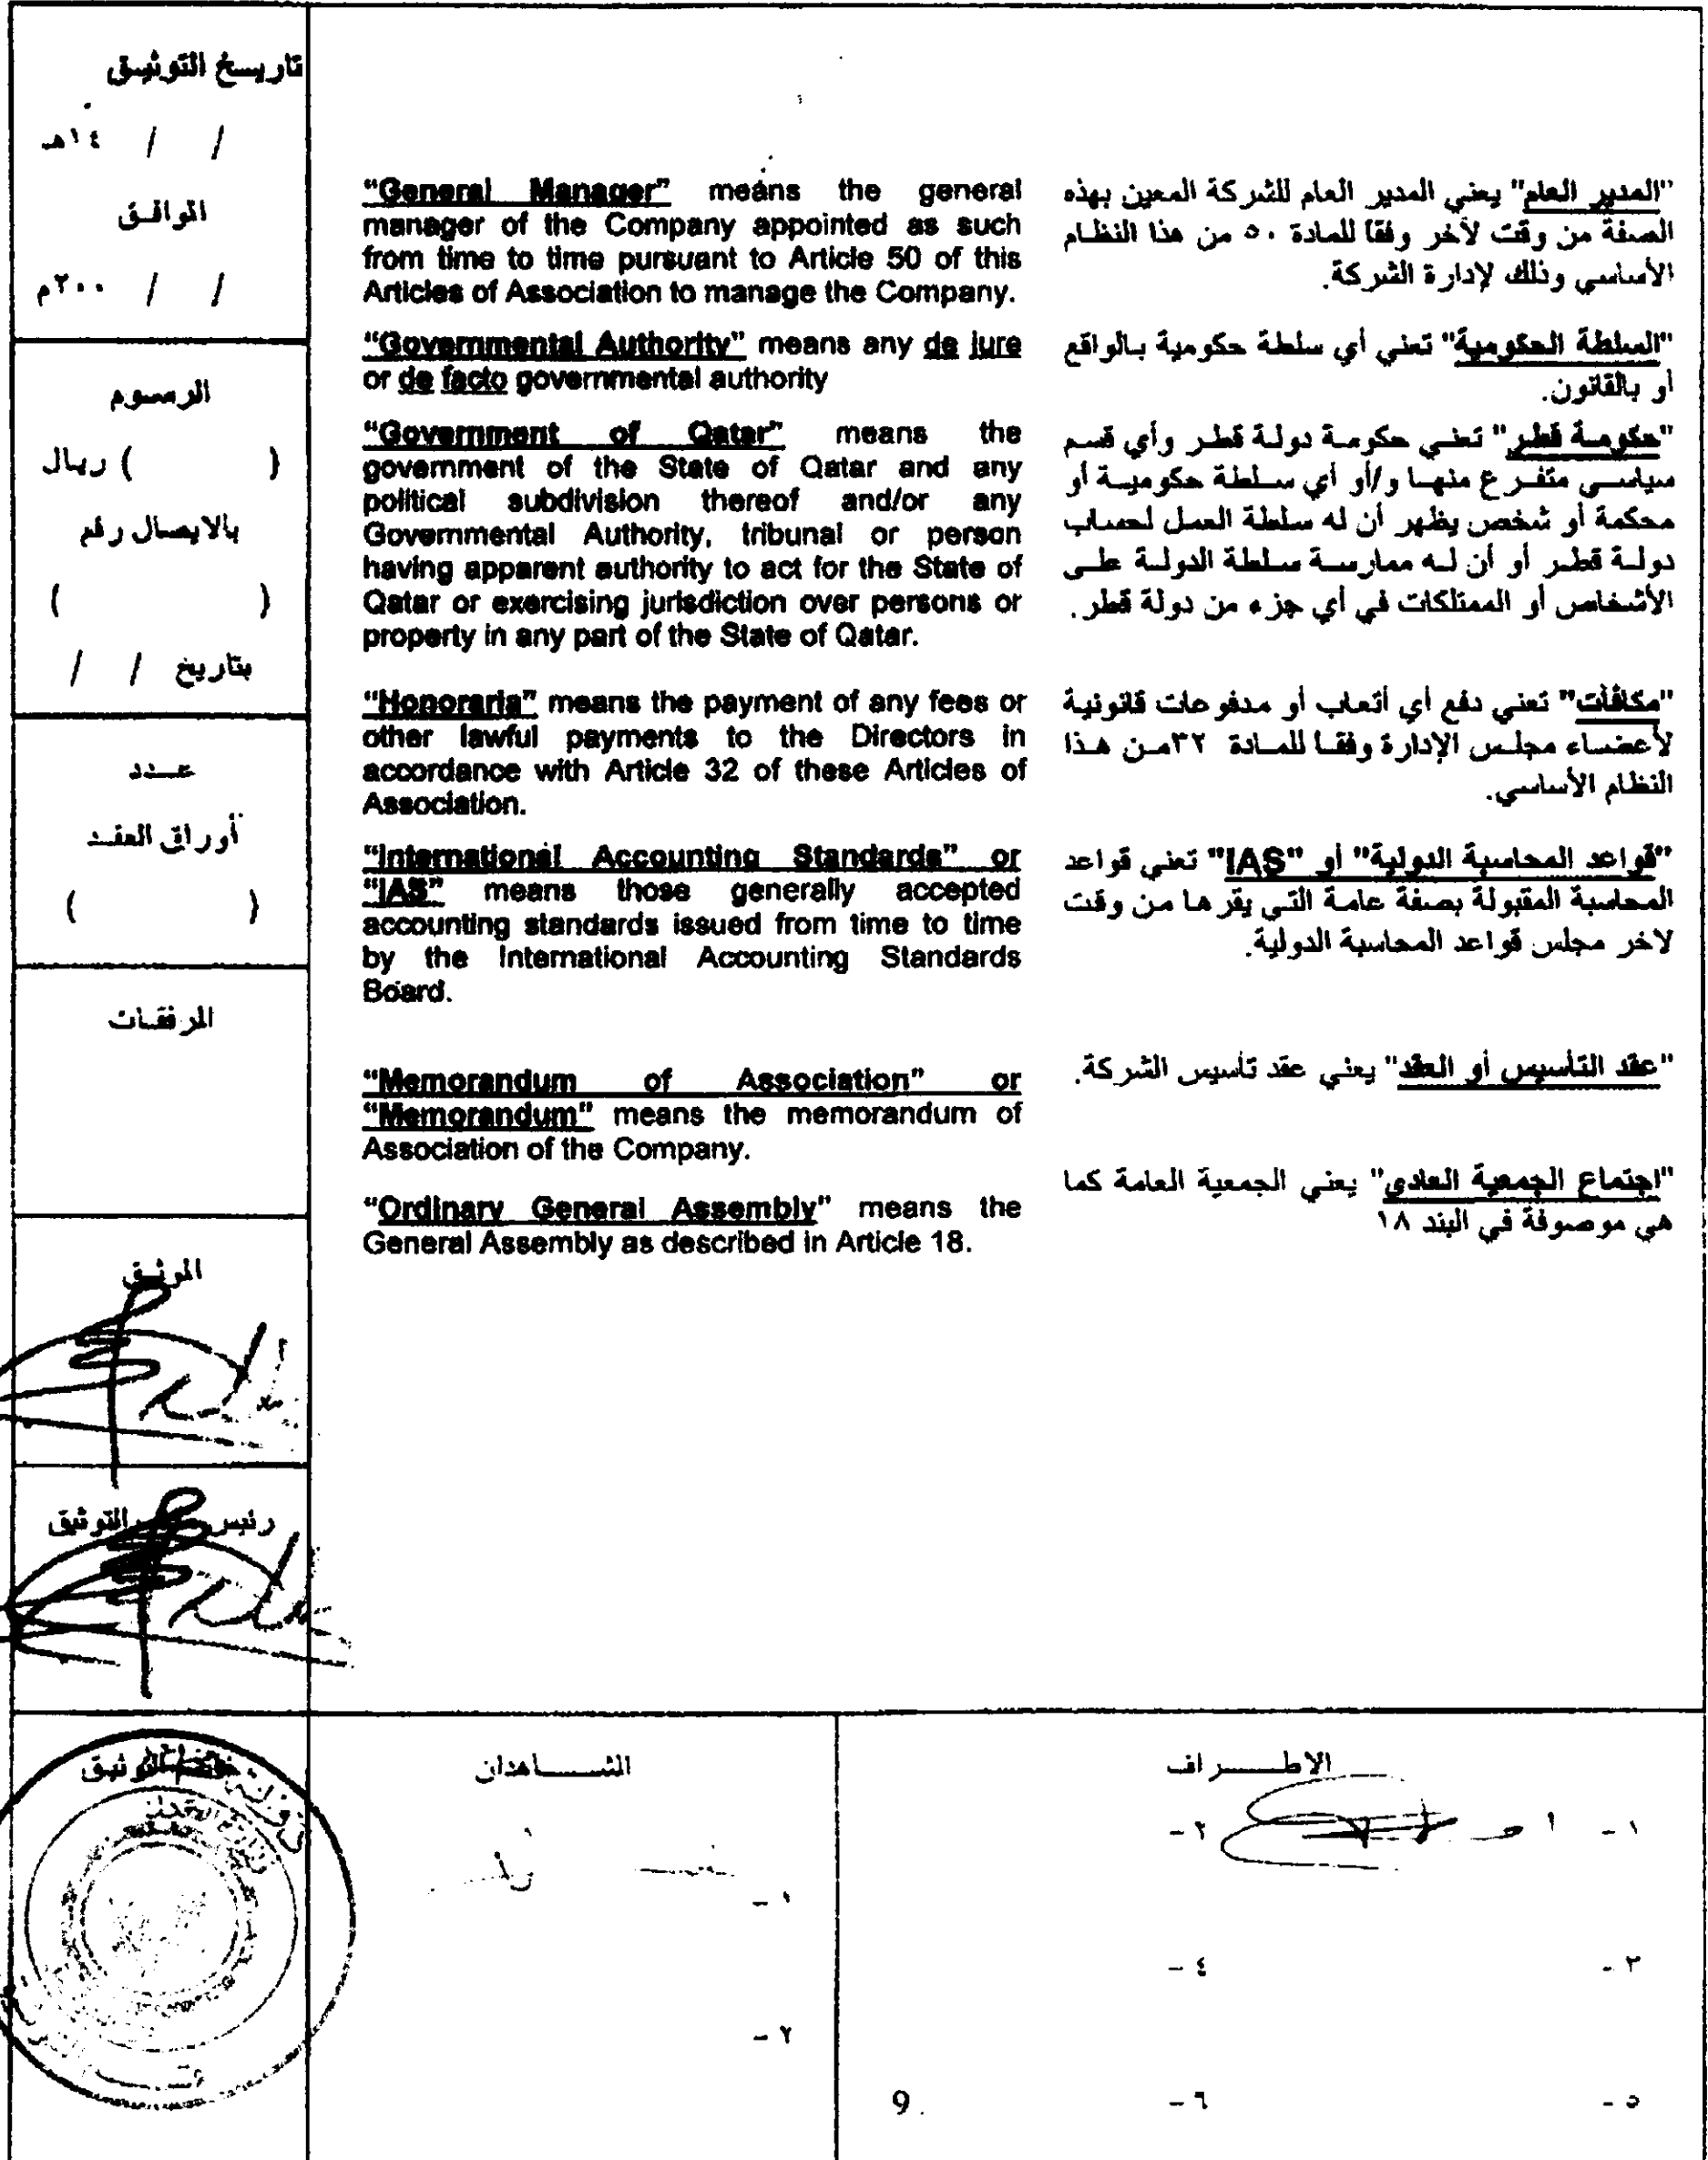 تاريخ التوثيق
/ / ١٤هـ
الموافق
/ / ٢٠٠م
الرسوم
( ) ريال
بالايصال رقم
( )
بتاريخ / /
عدد
أوراق العقد
( )
المرفقات
الموثق
رئيس التوثيق
"General Manager" means the general
manager of the Company appointed as such
from time to time pursuant to Article 50 of this
Articles of Association to manage the Company.
"Governmental Authority" means any de jure
or de facto governmental authority
"Government of Qatar" means the
government of the State of Qatar and any
political subdivision thereof and/or any
Governmental Authority, tribunal or person
having apparent authority to act for the State of
Qatar or exercising jurisdiction over persons or
property in any part of the State of Qatar.
"Honoraria" means the payment of any fees or
other lawful payments to the Directors in
accordance with Article 32 of these Articles of
Association.
"International Accounting Standards" or
"IAS" means those generally accepted
accounting standards issued from time to time
by the International Accounting Standards
Board.
"Memorandum of Association" or
"Memorandum" means the memorandum of
Association of the Company.
"Ordinary General Assembly" means the
General Assembly as described in Article 18.
"المدير العام" يعني المدير العام للشركة المعين بهذه
الصفة من وقت لآخر وفقا للمادة ٥٠ من هذا النظام
الأساسي وذلك لإدارة الشركة.
"السلطة الحكومية" تعني أي سلطة حكومية بالواقع
أو بالقانون.
"حكومة قطر" تعني حكومة دولة قطر وأي قسم
سياسي متفرع منها و/أو أي سلطة حكومية أو
محكمة أو شخص يظهر أن له سلطة العمل لحساب
دولة قطر أو أن له ممارسة سلطة الدولة على
الأشخاص أو الممتلكات في أي جزء من دولة قطر.
"مكافآت" تعني دفع أي أتعاب أو مدفوعات قانونية
لأعضاء مجلس الإدارة وفقا للمادة ٣٢من هذا
النظام الأساسي.
"قواعد المحاسبة الدولية" أو "IAS" تعني قواعد
المحاسبة المقبولة بصفة عامة التي يقرها من وقت
لاخر مجلس قواعد المحاسبة الدولية.
"عقد التأسيس أو العقد" يعني عقد تأسيس الشركة.
"اجتماع الجمعية العادي" يعني الجمعية العامة كما
هي موصوفة في البند ١٨
التوثيق
الشاهدان
١ -
٢ -
الاطراف
١ -
٢ -
٣ -
٤ -
٥ -
٦ -
9